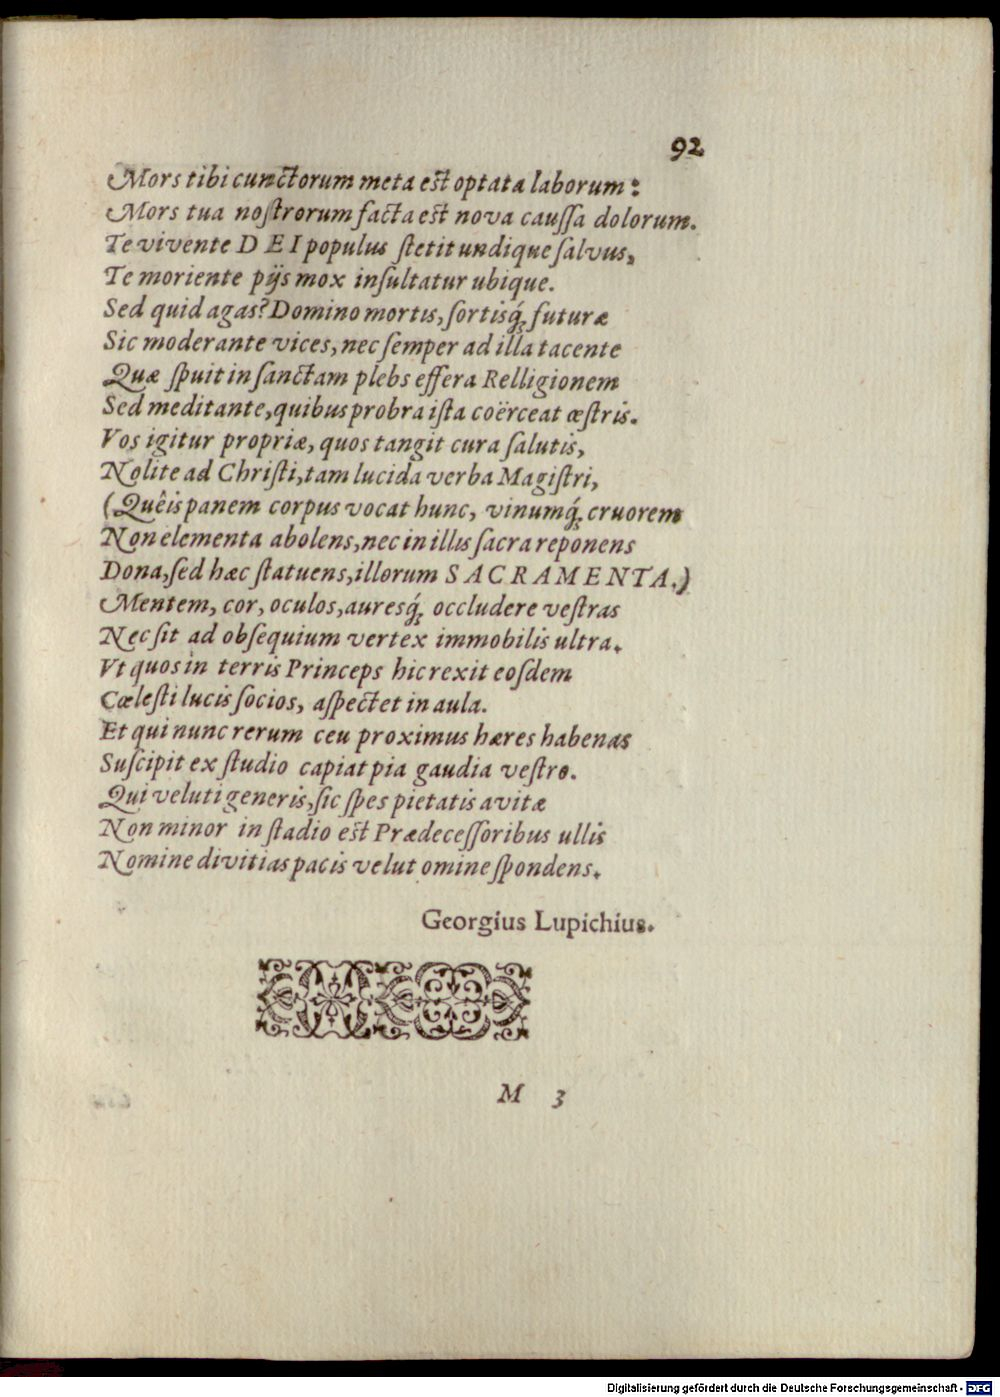 92
Mors tibi cunctorum meta est optata laborum:
Mors tua noſtrorum facta est nova cauſſa dolorum.
Te vivente D E I populus ſtetit undique ſalvus,
Te moriente pijs mox inſultatur ubique.
Sed quid agas? Domino mortis, ſortisq́; futuræ
Sic moderante vices, nec ſemper ad illa tacente
Quæ ſpuit in ſanctam plebs effera Relligionem
Sed meditante, quibus probra iſta coërceat œſtris.
Vos igitur propriæ, quos tangit cura ſalutis,
Nolite ad Chriſti, tam lucida verba Magiſtri,
(Quêis panem corpus vocat hunc, vinumq́; cruorem
Non elementa abolens, nec in illis ſacra reponens
Dona, ſed hæc ſtatuens, illorum S A C R A M E N T A.)
Mentem, cor, oculos, auresq́; occludere veſtras
Nec ſit ad obſequium vertex immobilis ultra.
Vt quos in terris Princeps hic rexit eoſdem
Cœleſti lucis ſocios, aſpectet in aula.
Et qui nunc rerum ceu proximus hæres habenas
Suſcipit ex ſtudio capiat pia gaudia veſtro.
Qui veluti generis, ſic ſpes pietatis avitæ
Non minor in ſtadio est Prædeceſſoribus ullis
Nomine divitias pacis velut omine ſpondens.
Georgius Lupichius.
M 3
Digitalisierung gefördert durch die Deutsche Forschungsgemeinschaft - DFG